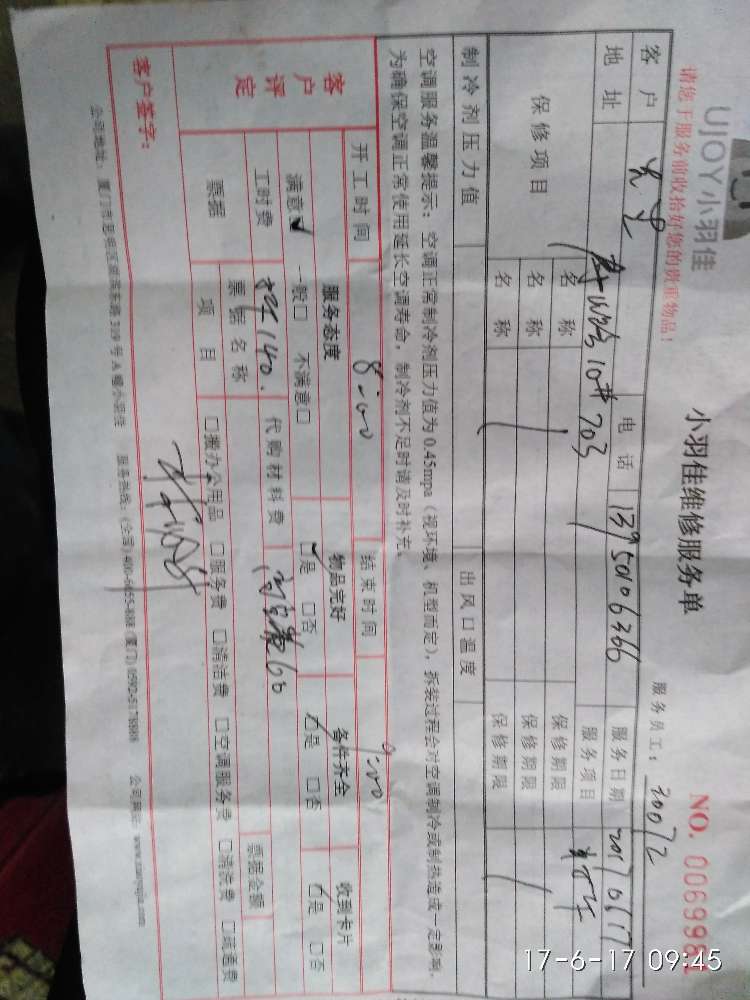 UJOY小羽佳
小羽佳维修服务单
NO. 006998
请您于服务前收拾好您的贵重物品!
服务员工: 30072
客户
电话 13950106366
服务日期 20170617
地址 10# 703
服务项目
保修项目
名称
保修期限
名称
保修期限
名称
保修期限
制冷剂压力值
出风口温度
空调服务温馨提示:空调正常制冷剂压力值为0.45mpa(视环境、机型而定),拆装过程会对空调制冷或制热造成一定影响。
为确保空调正常使用延长空调寿命,制冷剂不足时请及时补充。
开工时间 8:00
结束时间 9:00
客户评定
服务态度
物品完好
备件齐全
收到卡片
满意☑ 一般□ 不满意□
☑是 □否
☑是 □否
☑是 □否
工时费 140.
代购材料费 60
票据
票据名称
票据金额
项目
□搬办公用品 □服务费 □清洁费 □空调服务费 □清洗费 □疏通费
客户签字:
公司地址:厦门市思明区 319号A幢小羽佳 服务热线:(全国)400-6055-888 (厦门)0592-5178888 公司网站: www.xmxyj.com
17-6-17 09:45